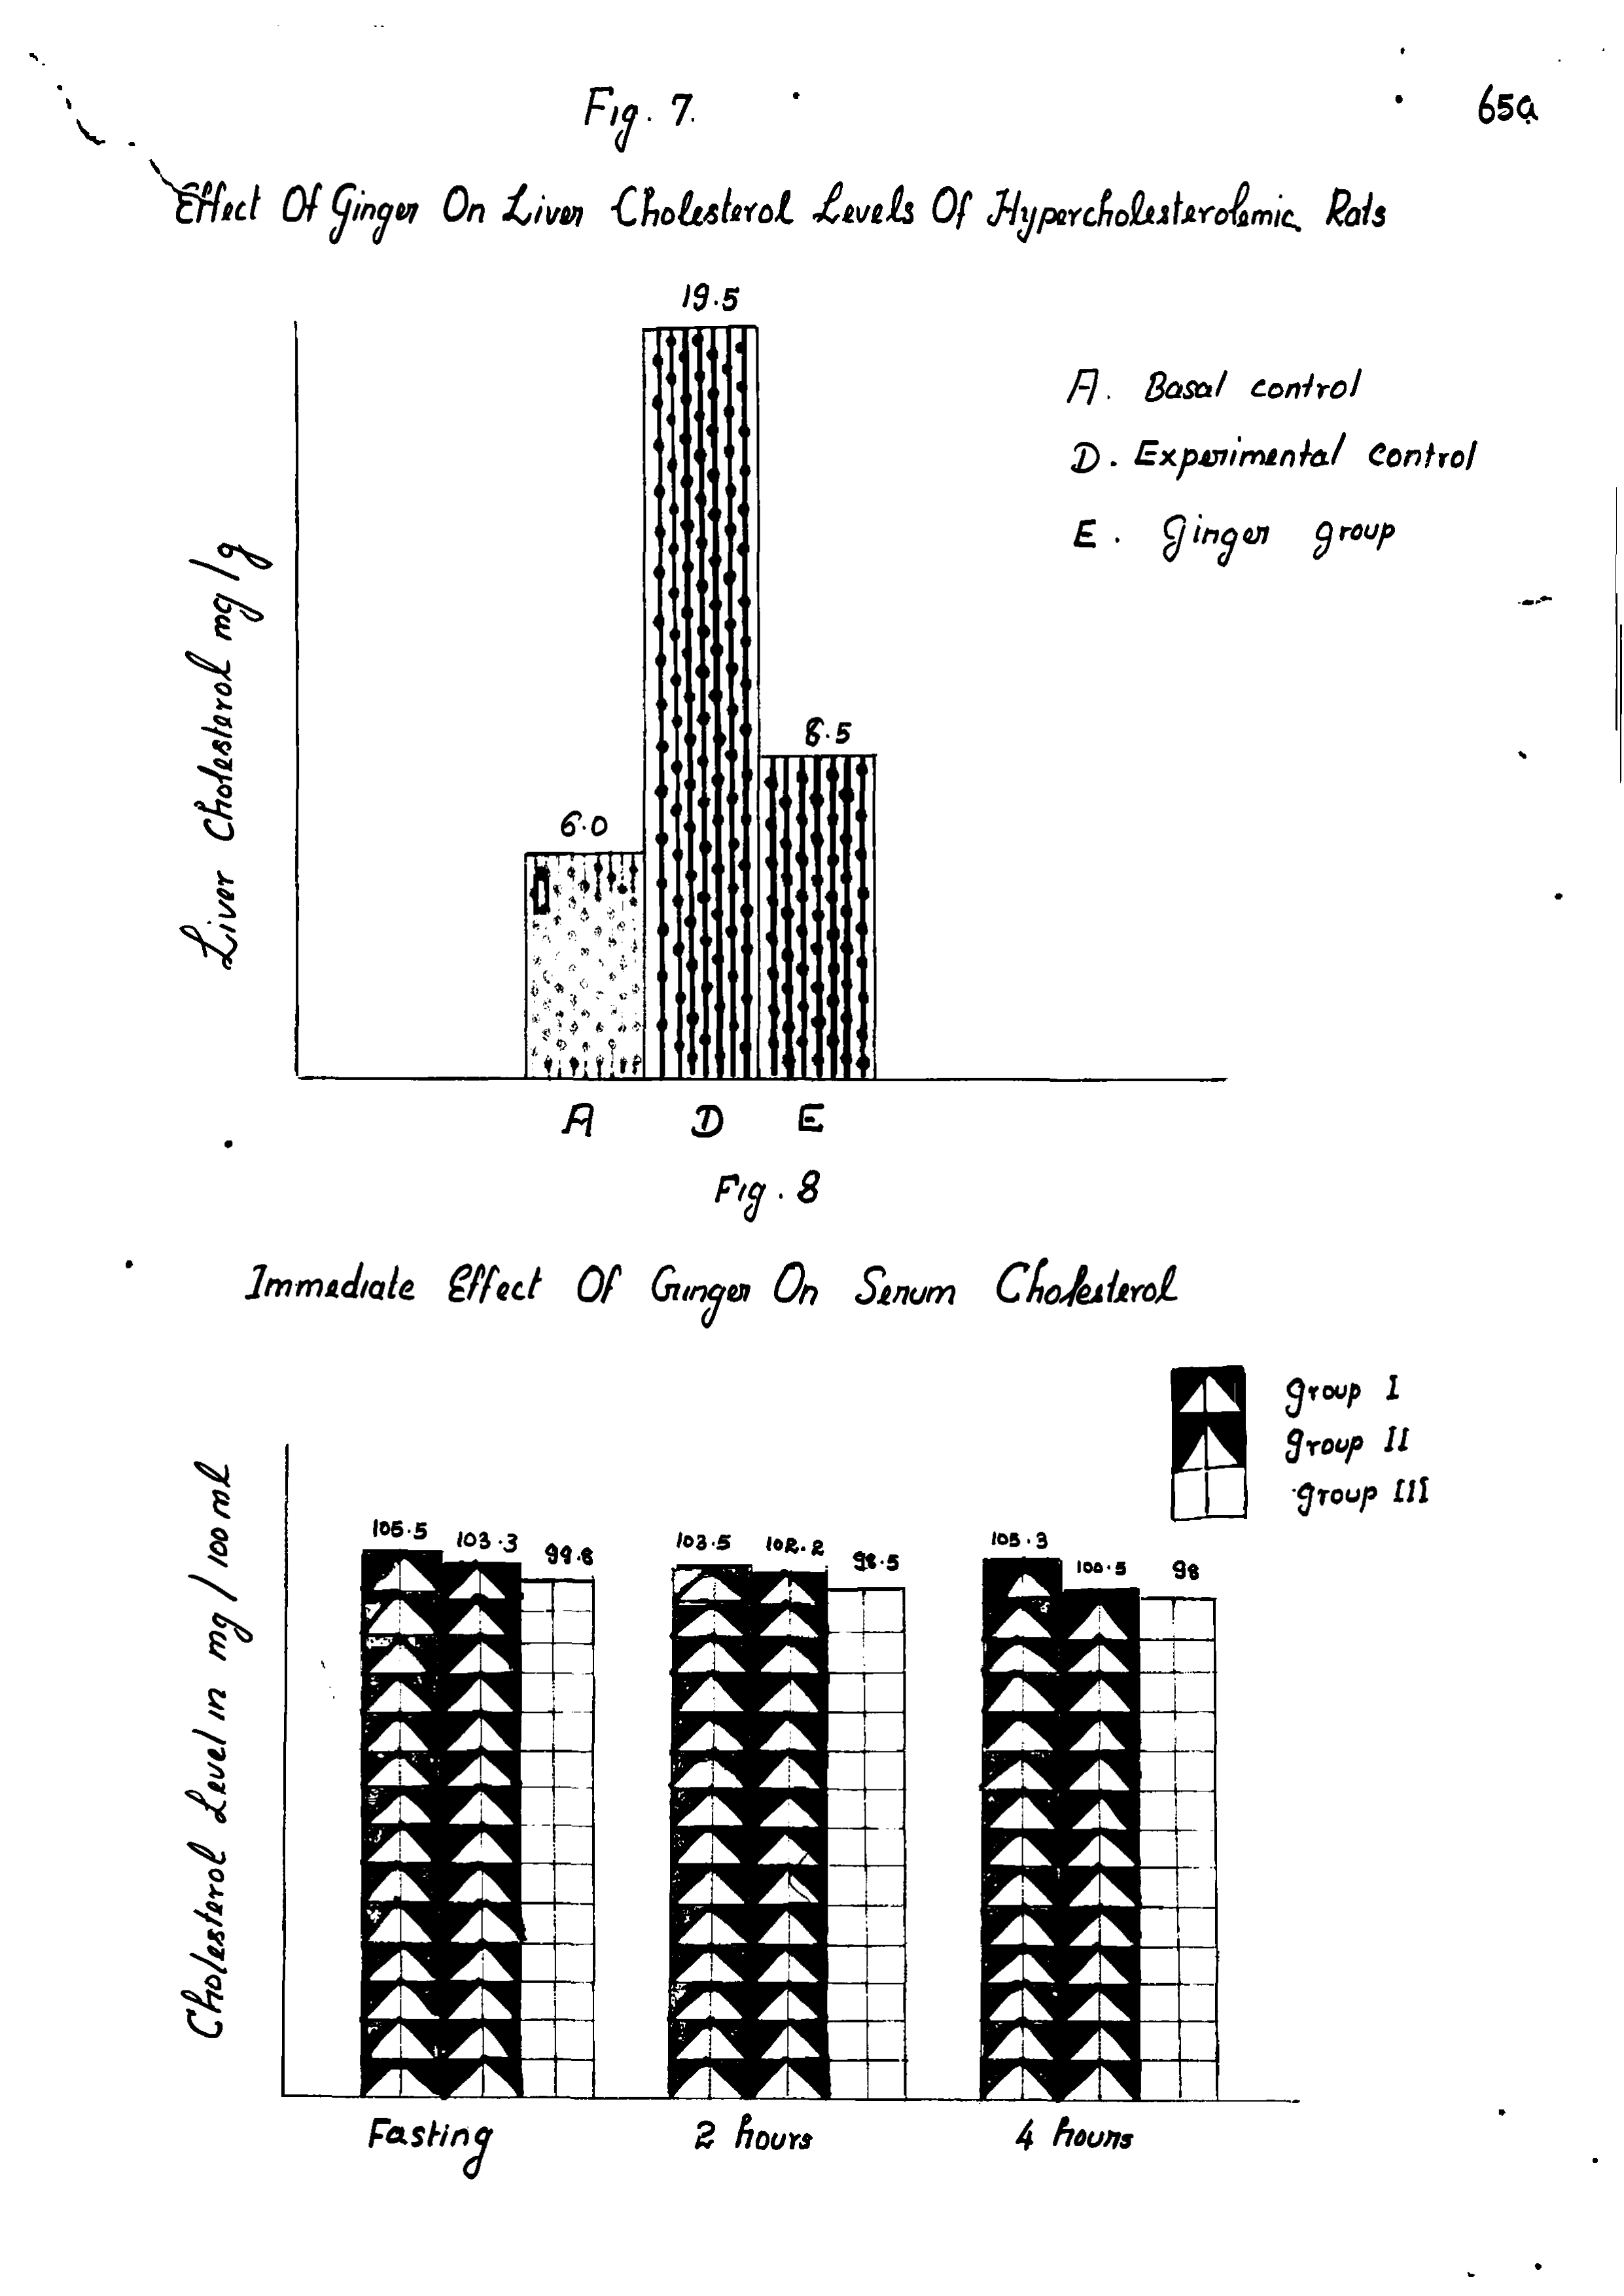 65a
Fig. 7.
Effect Of Ginger On Liver Cholesterol Levels Of Hypercholesterolemic Rats
19.5
A. Basal control
D. Experimental control
E. Ginger group
Liver Cholesterol mg/g
8.5
6.0
A D E
Fig. 8
Immediate Effect Of Ginger On Serum Cholesterol
group I
group II
group III
Cholesterol Level in mg/100 ml
105.5 103.3 99.8 103.5 102.2 98.5 105.3 100.5 98
Fasting 2 hours 4 hours